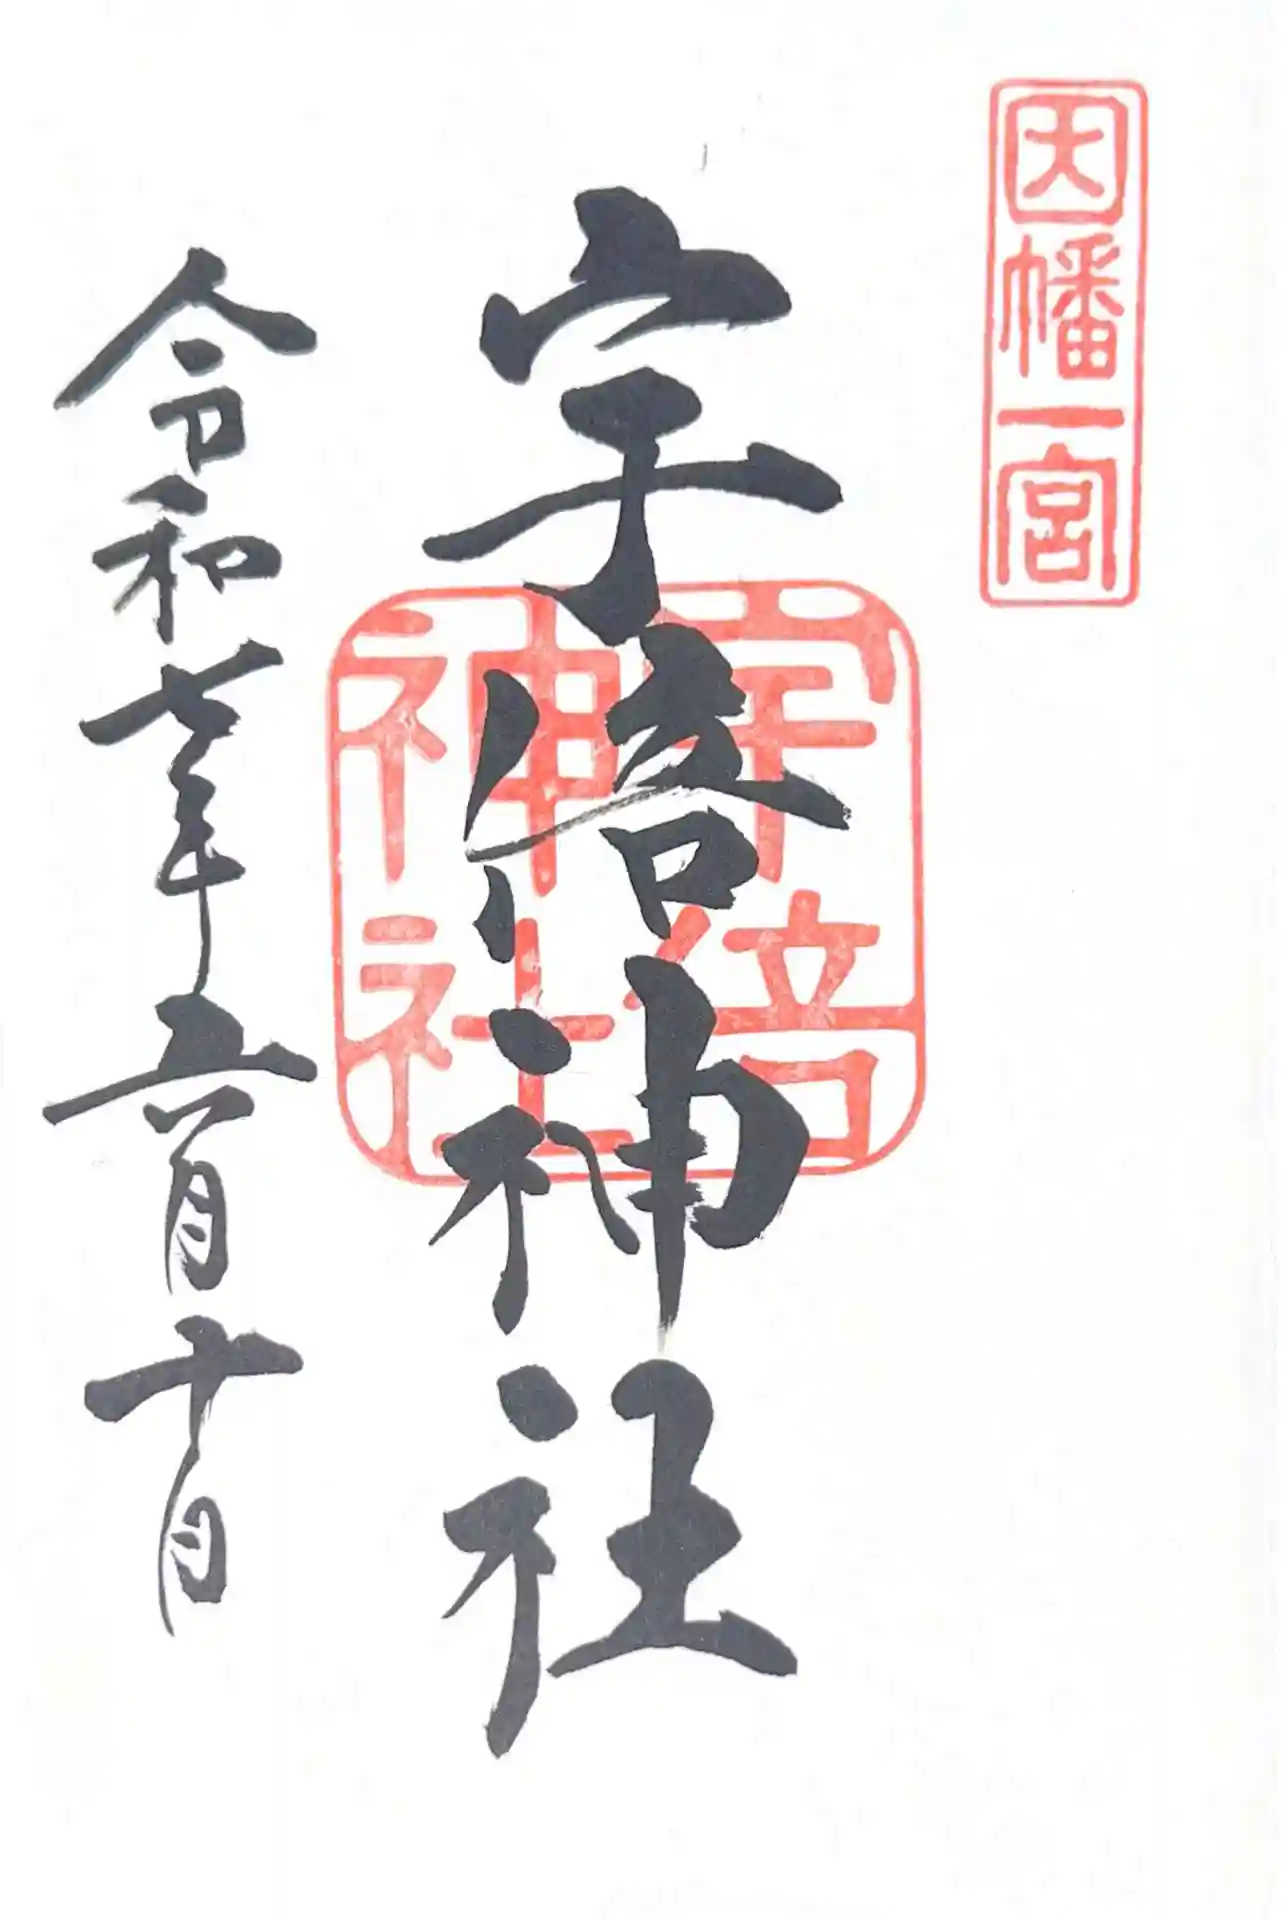 因幡一宮
宇倍神社
宇倍
神社
令和七年六月十日